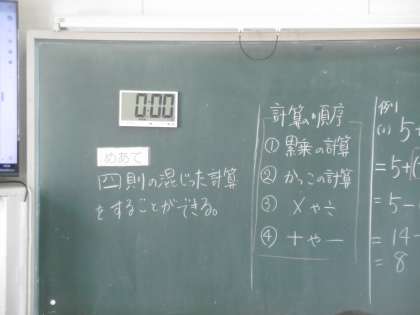 0:00
めあて
四則の混じった計算
をすることができる。
計算の順序
① 累乗の計算
② かっこの計算
③ ×や÷
④ +や−
例1
(1) 5
=5+(
=5−
=14−
=8